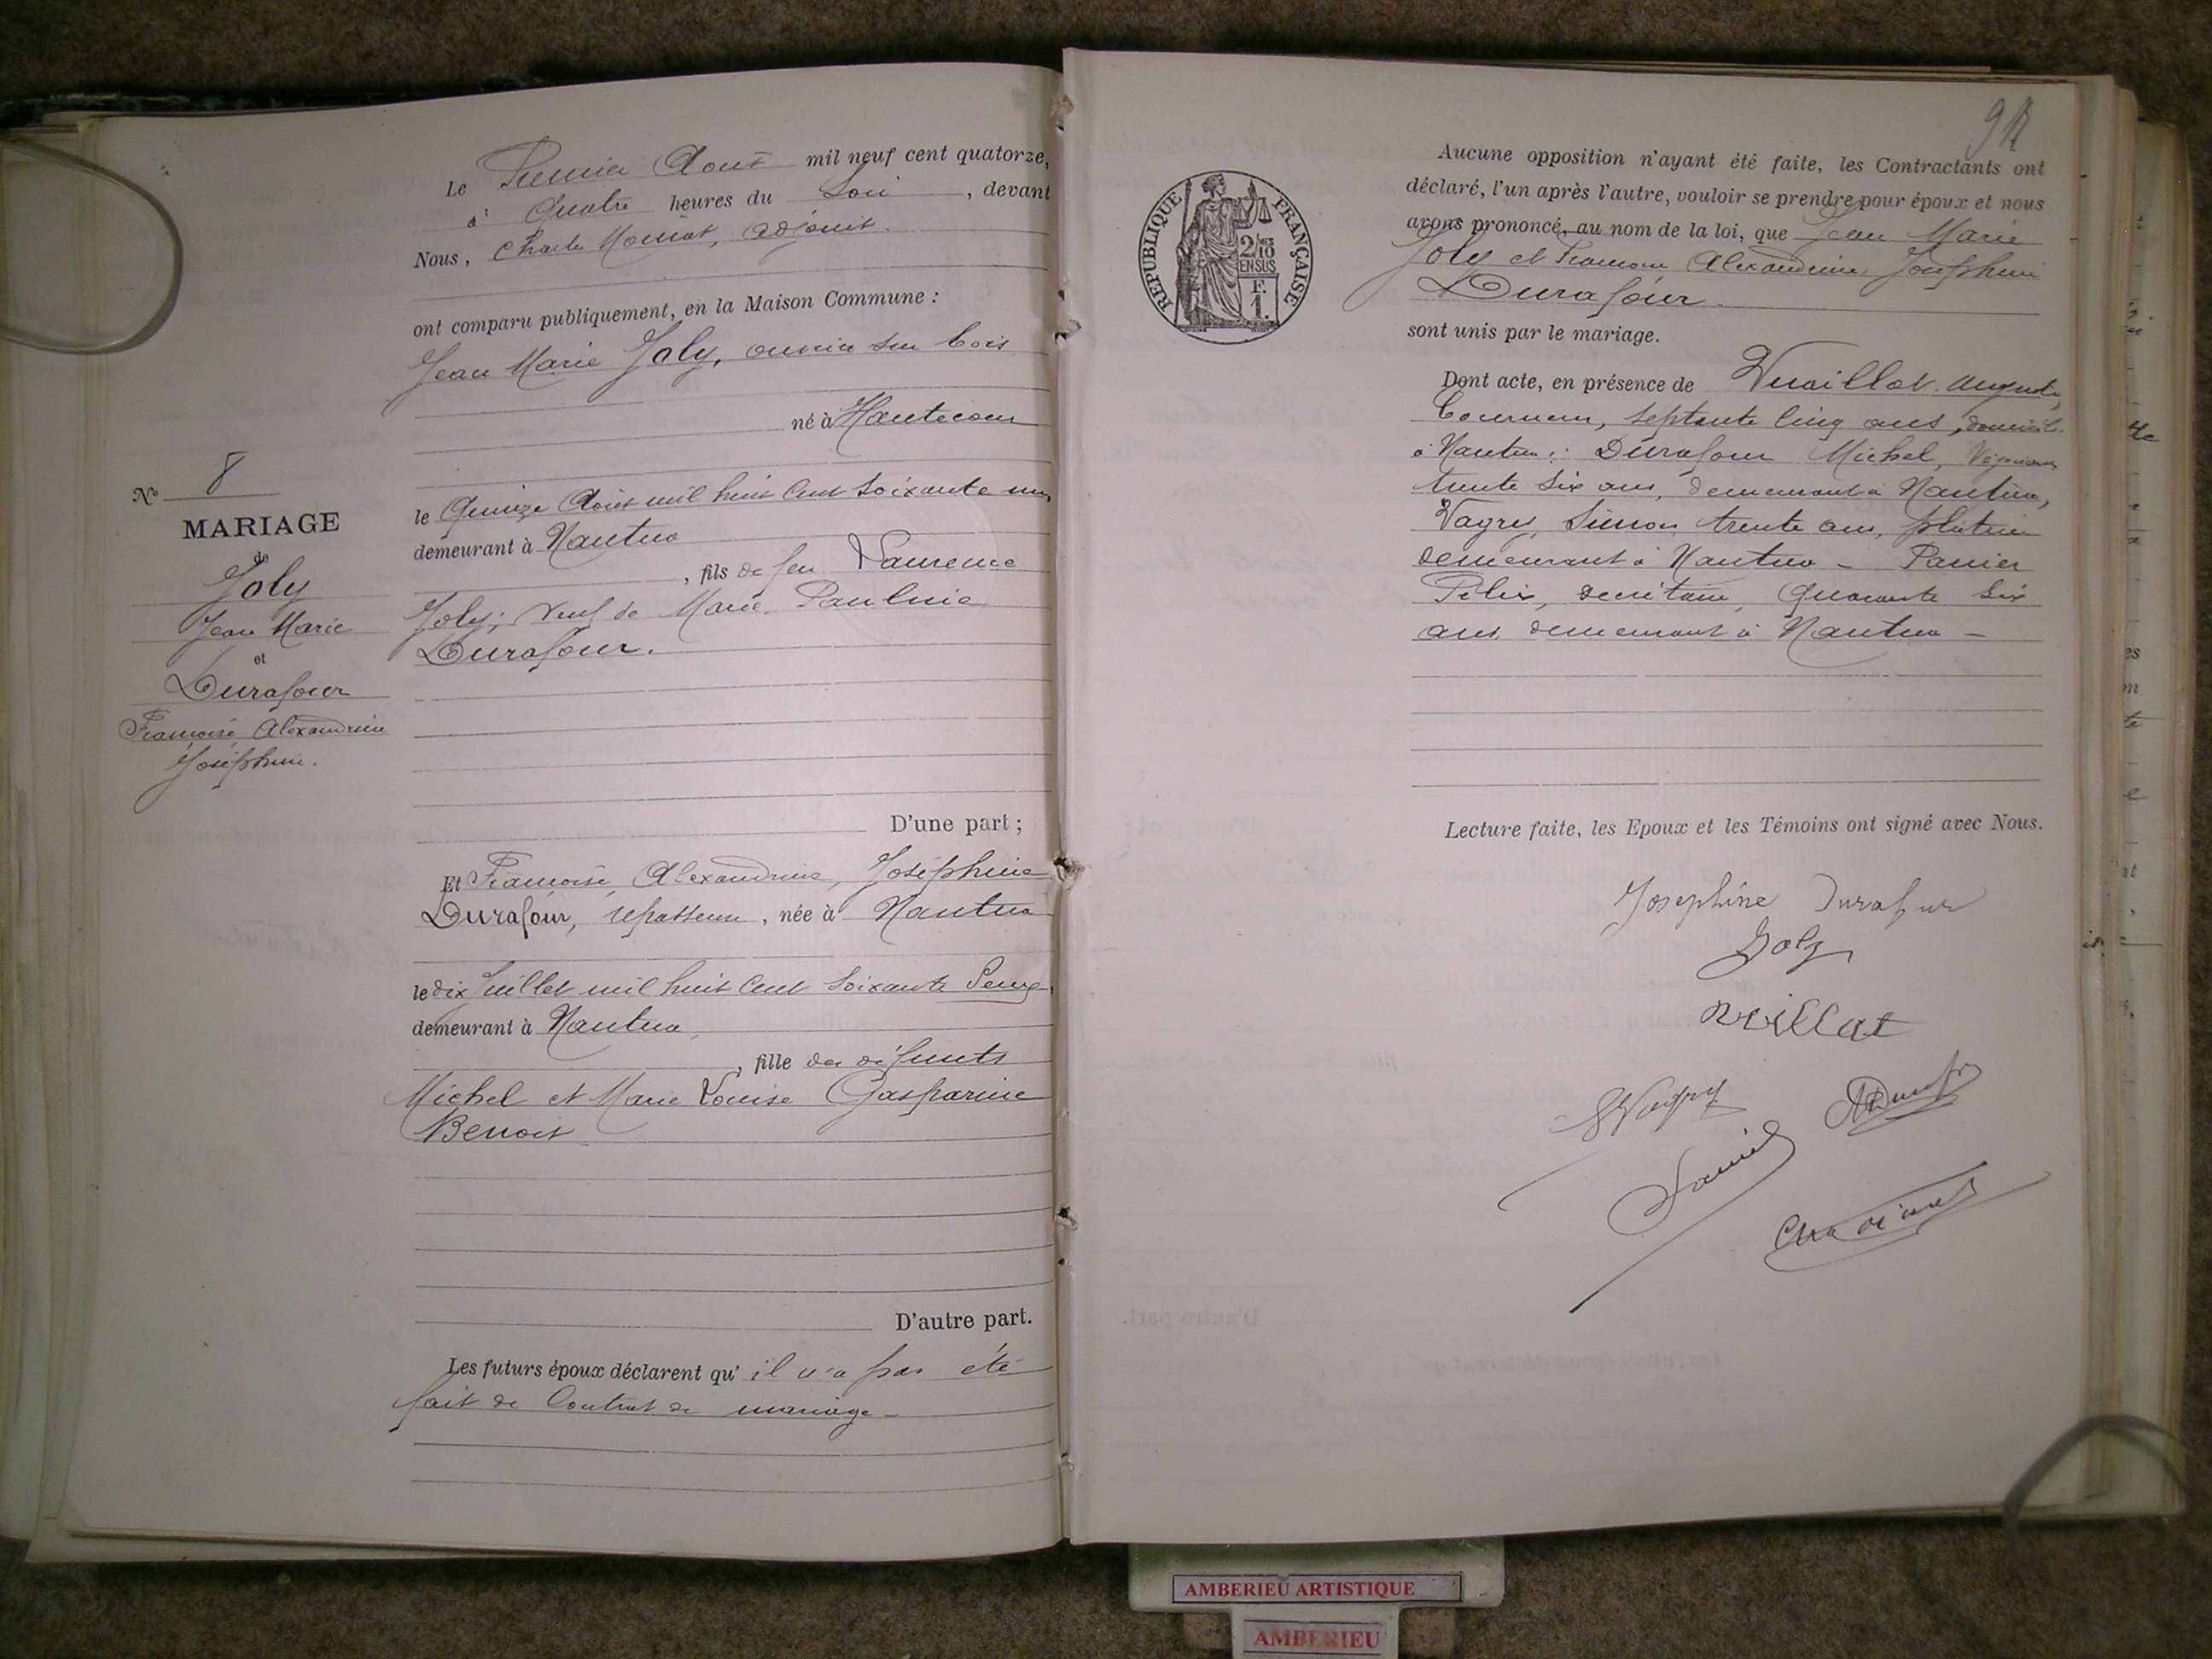 Le Premier Août mil neuf cent quatorze,
à Quatre heures du Soir, devant
Nous, Charles adjoint.
ont comparu publiquement, en la Maison Commune :
Jean Marie Joly, ouvrier sur bois
né à Hautecour
le Quinze Août mil huit cent soixante un,
demeurant à Nantua
, fils de feu Laurence
Joly; veuf de Marie Pauline
Durafour.
N° 8
MARIAGE
de
Joly
Jean Marie
et
Durafour
Françoise Alexandrine
Joséphine.
D'une part ;
Et Françoise, Alexandrine, Joséphine
Durafour, repasseuse, née à Nantua
le dix Juillet mil huit cent soixante
demeurant à Nantua
, fille des défunts
Michel et Marie Louise Gasparine
Benoit
D'autre part.
Les futurs époux déclarent qu' il n'a pas été
fait de Contrat de mariage -
94
RÉPUBLIQUE FRANÇAISE
2/10
EN SUS
F.
1.
Aucune opposition n'ayant été faite, les Contractants ont
déclaré, l'un après l'autre, vouloir se prendre pour époux et nous
avons prononcé, au nom de la loi, que Jean Marie
Joly et Françoise Alexandrine Joséphine
Durafour
sont unis par le mariage.
Dont acte, en présence de Vuaillat Auguste,
Tourneur, septante cinq ans, domicil.
à Nantua; Durafour Michel,
trente six ans, demeurant à Nantua,
Vagry, Simon, trente ans, plâtrier
demeurant à Nantua - Panier
Félix, secrétaire, Quarante six
ans demeurant à Nantua -
Lecture faite, les Epoux et les Témoins ont signé avec Nous.
Josephine Durafour
Joly
SVagry
Panier
AMBERIEU ARTISTIQUE
AMBERIEU